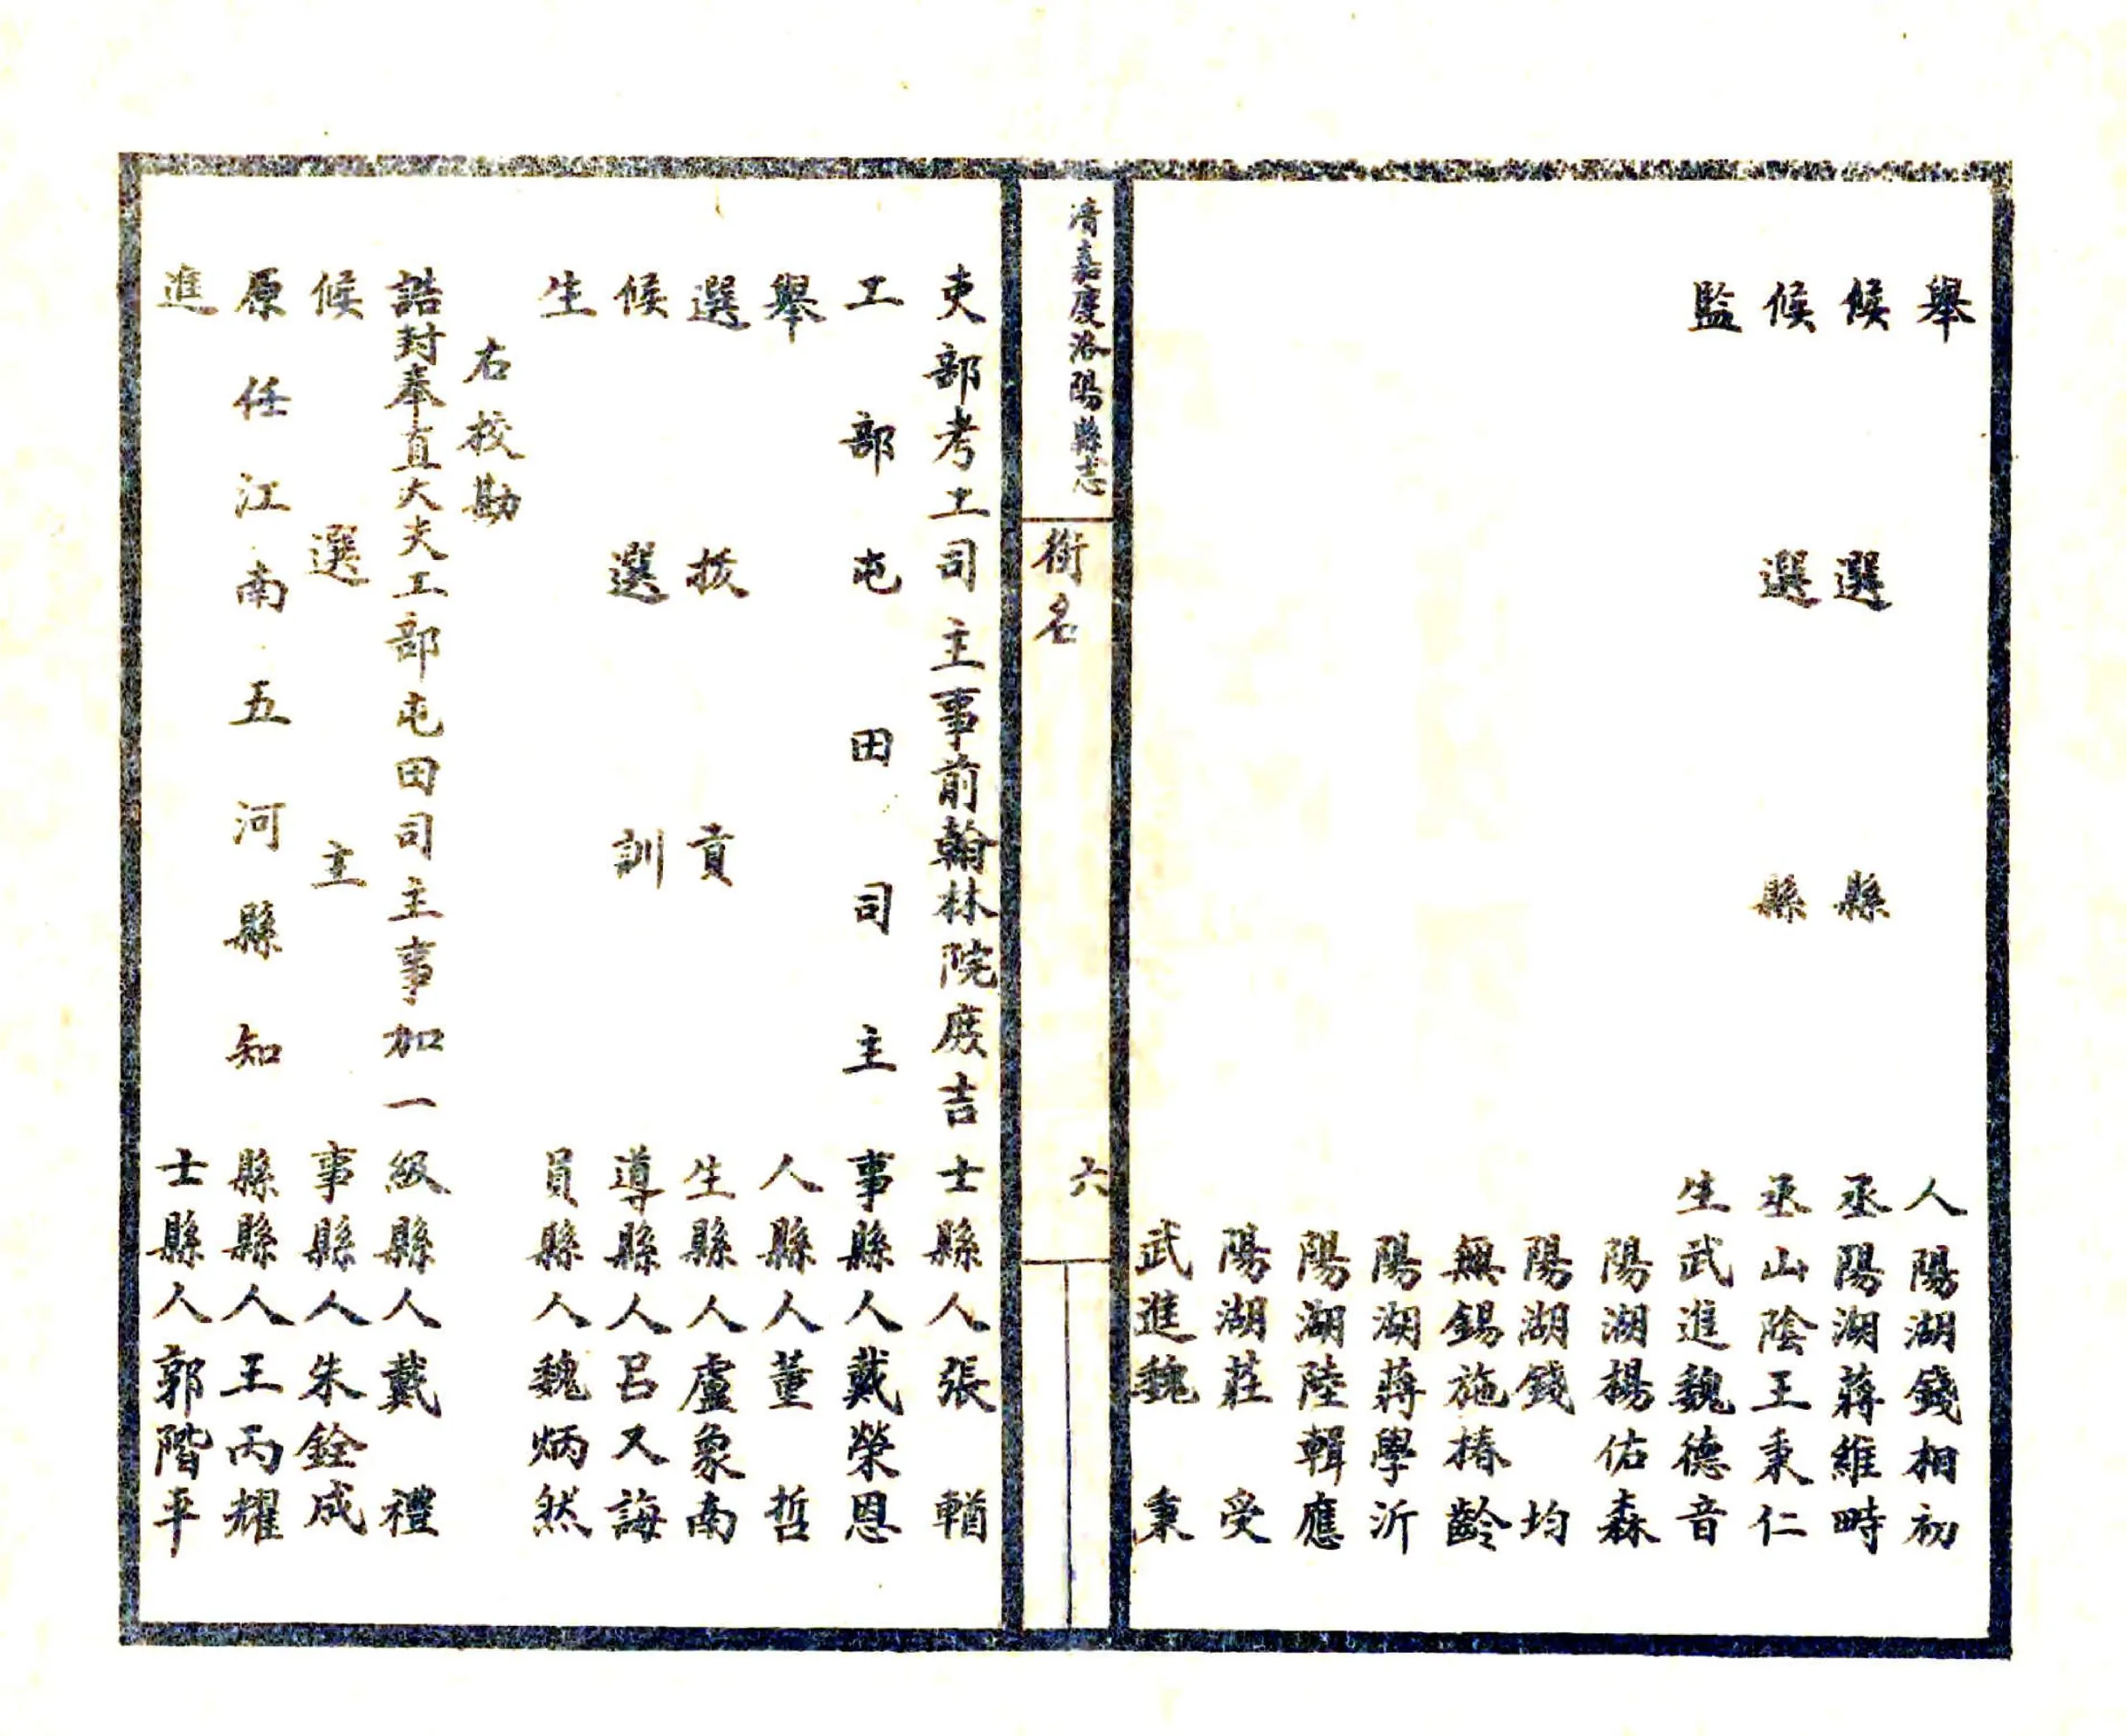 舉人陽湖錢相初
候選縣丞陽湖蔣維時
候選縣丞山陰王秉仁
監生武進魏德音
陽湖楊佑森
陽湖錢均
無錫施椿齡
陽湖蔣學沂
陽湖陸輯應
陽湖莊受
武進魏秉
清嘉慶洛陽縣志
銜名
六
吏部考工司主事前翰林院庶吉士縣人張輶
工部屯田司主事縣人戴榮恩
舉人縣人董哲
選拔貢生縣人盧象南
候選訓導縣人呂又誨
生員縣人魏炳然
右校勘
誥封奉直大夫工部屯田司主事加一級縣人戴禮
候選主事縣人朱銓成
原任江南五河縣知縣縣人王丙耀
進士縣人郭階平